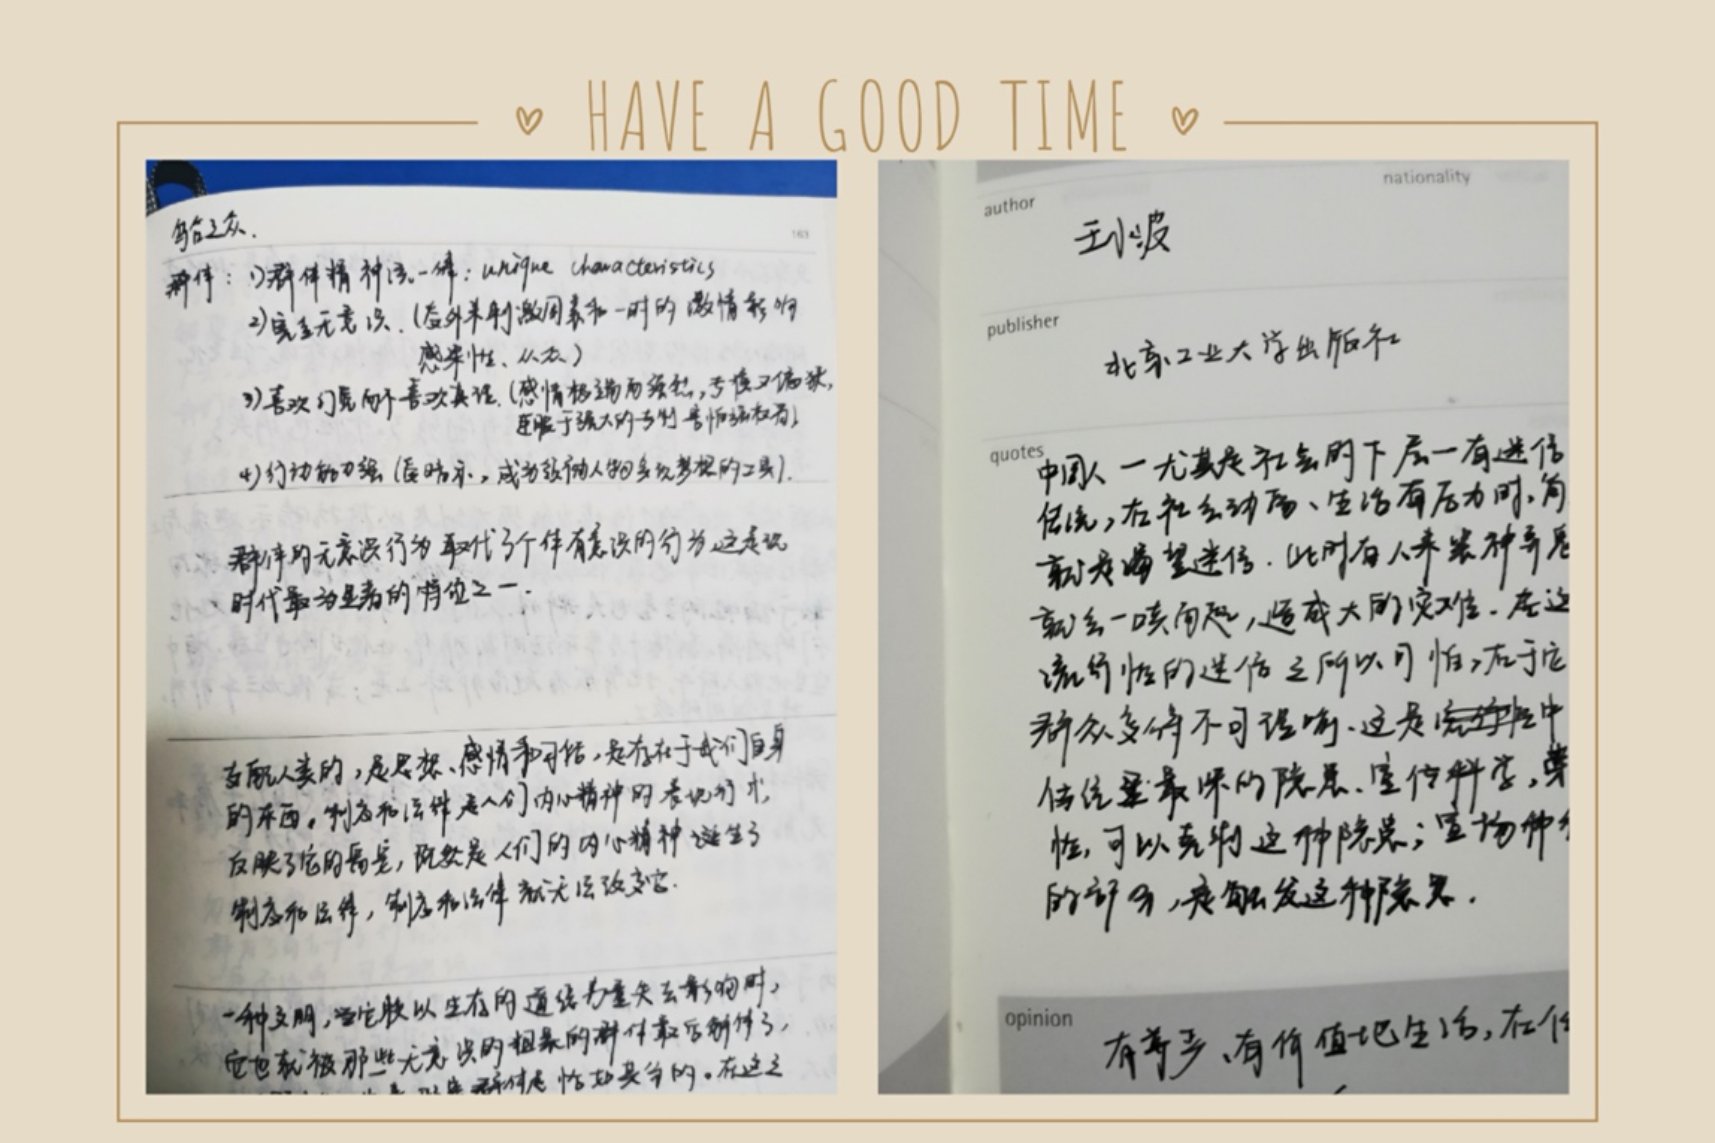 HAVE A GOOD TIME
乌合之众.
163
群体: 1)群体精神统一律: unique characteristics
2)完全无意识.(受外来刺激因素和一时的激情影响
感染性、从众)
3)喜欢幻觉而不喜欢真理.(感情极端而强烈,专横又偏狭,
臣服于强大的专制 害怕强权者)
4)行动能力强(受暗示,成为 人物实现梦想的工具).
群体的无意识行为取代了个体有意识的行为,这是现
时代最为显著的特征之一.
支配人类的,是思想、感情和习俗,是存在于我们自身
的东西。制度和法律是人们内心精神的表现形式,
反映了它的需要,既然是人们的内心精神诞生了
制度和法律,制度和法律就无法改变它.
一种文明,当它赖以生存的道德力量失去影响时,
它也就被那些无意识的粗暴的群体最后解体了,
群体是恰如其分的。在这之
author
nationality
王小波
publisher
北京工业大学出版社
quotes
中国人一尤其是社会的下层一有迷信
传统,在社会动荡、生活有压力时,简
就是渴望迷信.此时有人来装神弄鬼
就会一哄而起,造成大的灾难.在这
流行性的迷信之所以可怕,在于它
群众变得不可理喻.这是 中
传统里最深的隐患.宣传科学,
性,可以克制这种隐患;宣扬种
的部分,是触发这种隐患.
opinion
有尊严、有价值地生活,在